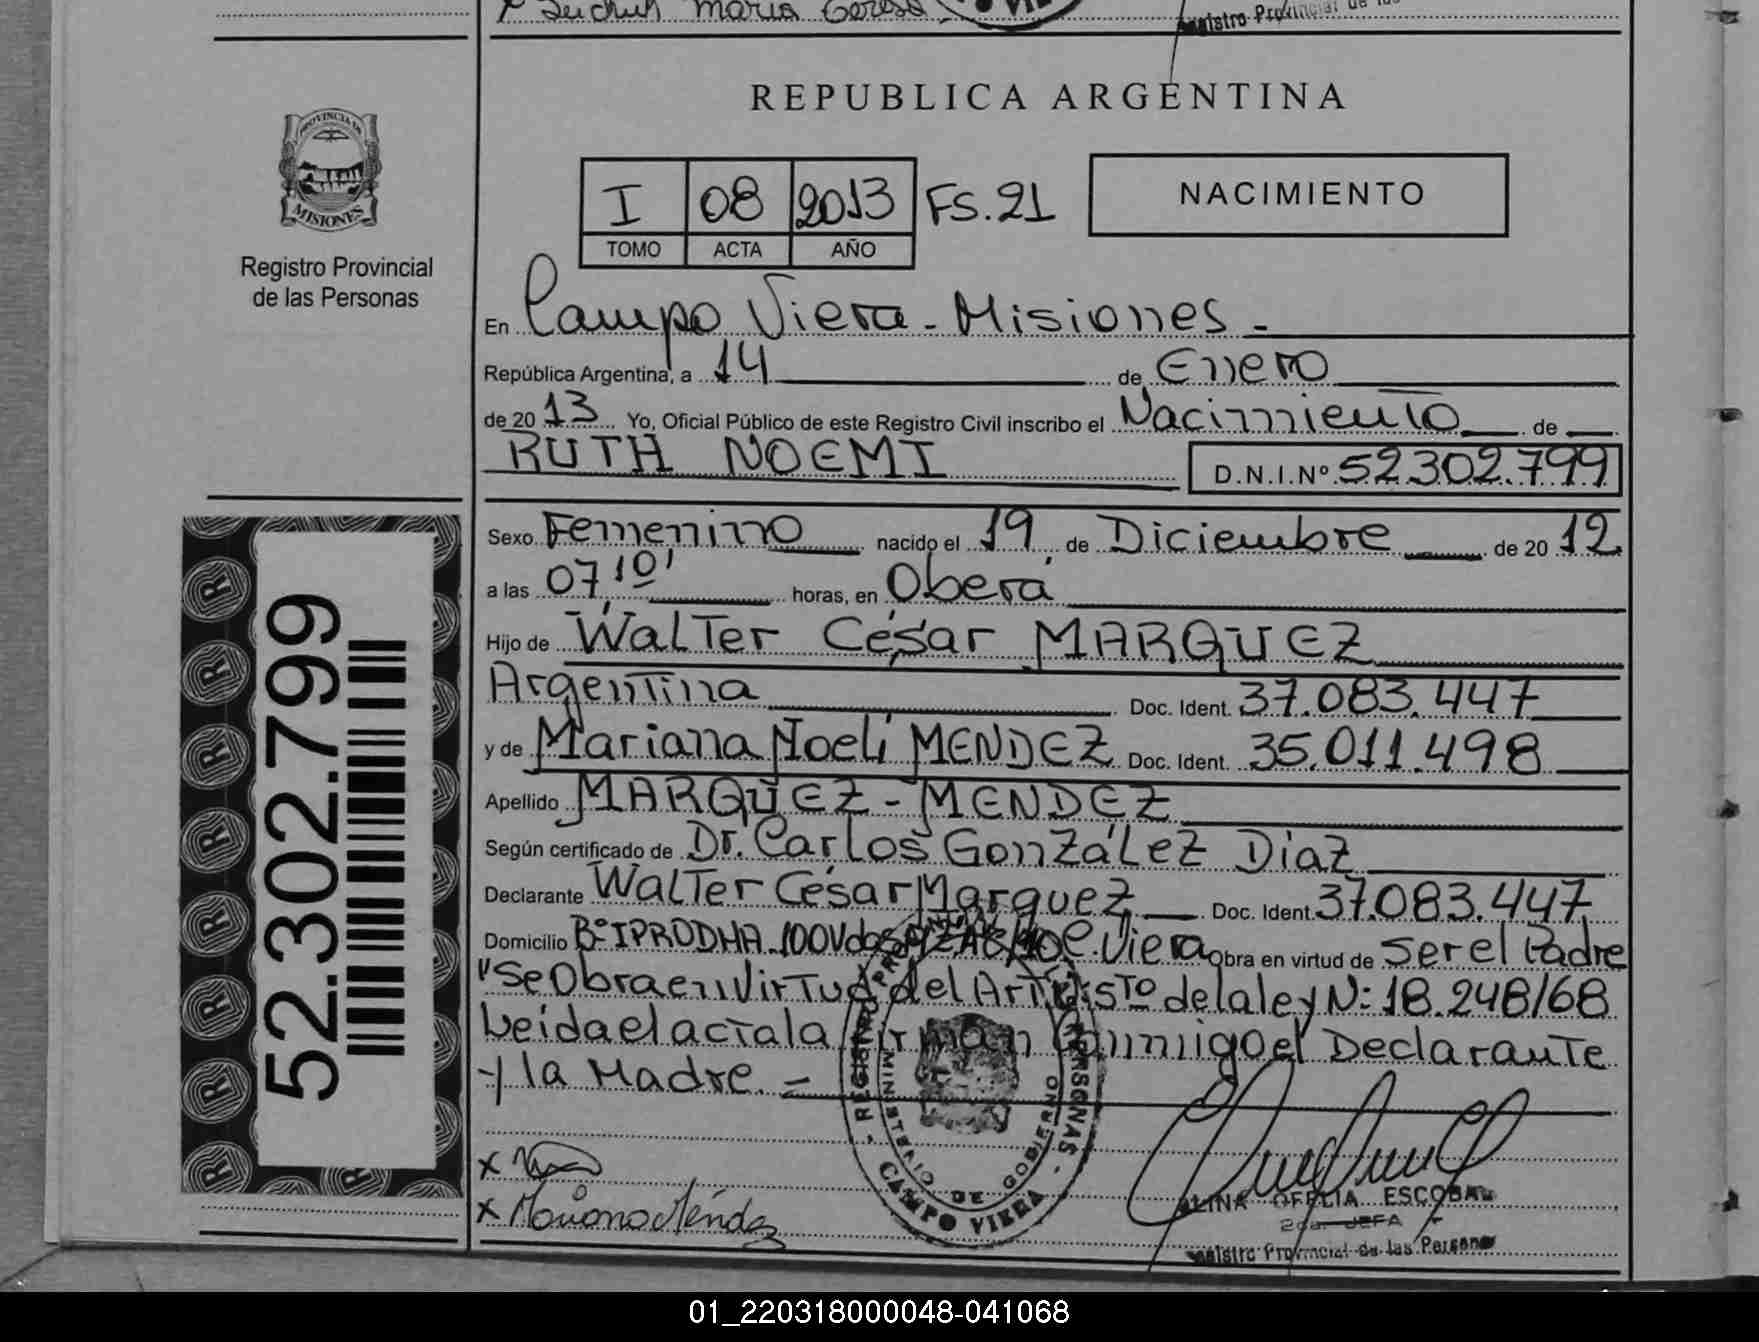 María Teresa
Registro Provincial de las
REPUBLICA ARGENTINA
PROVINCIA DE
MISIONES
Registro Provincial
de las Personas
I 08 2013 FS.21
TOMO ACTA AÑO
NACIMIENTO
En Campo Viera - Misiones -
República Argentina, a 14 de Enero
de 2013 Yo, Oficial Público de este Registro Civil inscribo el Nacimiento de
RUTH NOEMI D.N.I.Nº 52.302.799
Sexo Femenino nacido el 19 de Diciembre de 2012
a las 07,10' horas, en Oberá
Hijo de Walter César MARQUEZ
Argentina Doc. Ident. 37.083.447
y de Mariana Noelí MENDEZ Doc. Ident. 35.011.498
Apellido MARQUEZ - MENDEZ
Según certificado de Dr. Carlos González Díaz
Declarante Walter César Marquez Doc. Ident. 37.083.447
Domicilio Bº IPRODHA 100 Vdas C. Viera Obra en virtud de ser el Padre
"Se Obra en Virtud del Art. 1sto de la ley N: 18.248/68
Leida el acta la firman Conmigo el Declarante
y la Madre. -
x
x Mariana Méndez
REGISTRO PERSONAS
MINISTERIO DE GOBIERNO
CAMPO VIERA
ALINA OFELIA ESCOBAR
2da. JEFA
Registro Provincial de las Personas
52.302.799
01_220318000048-041068